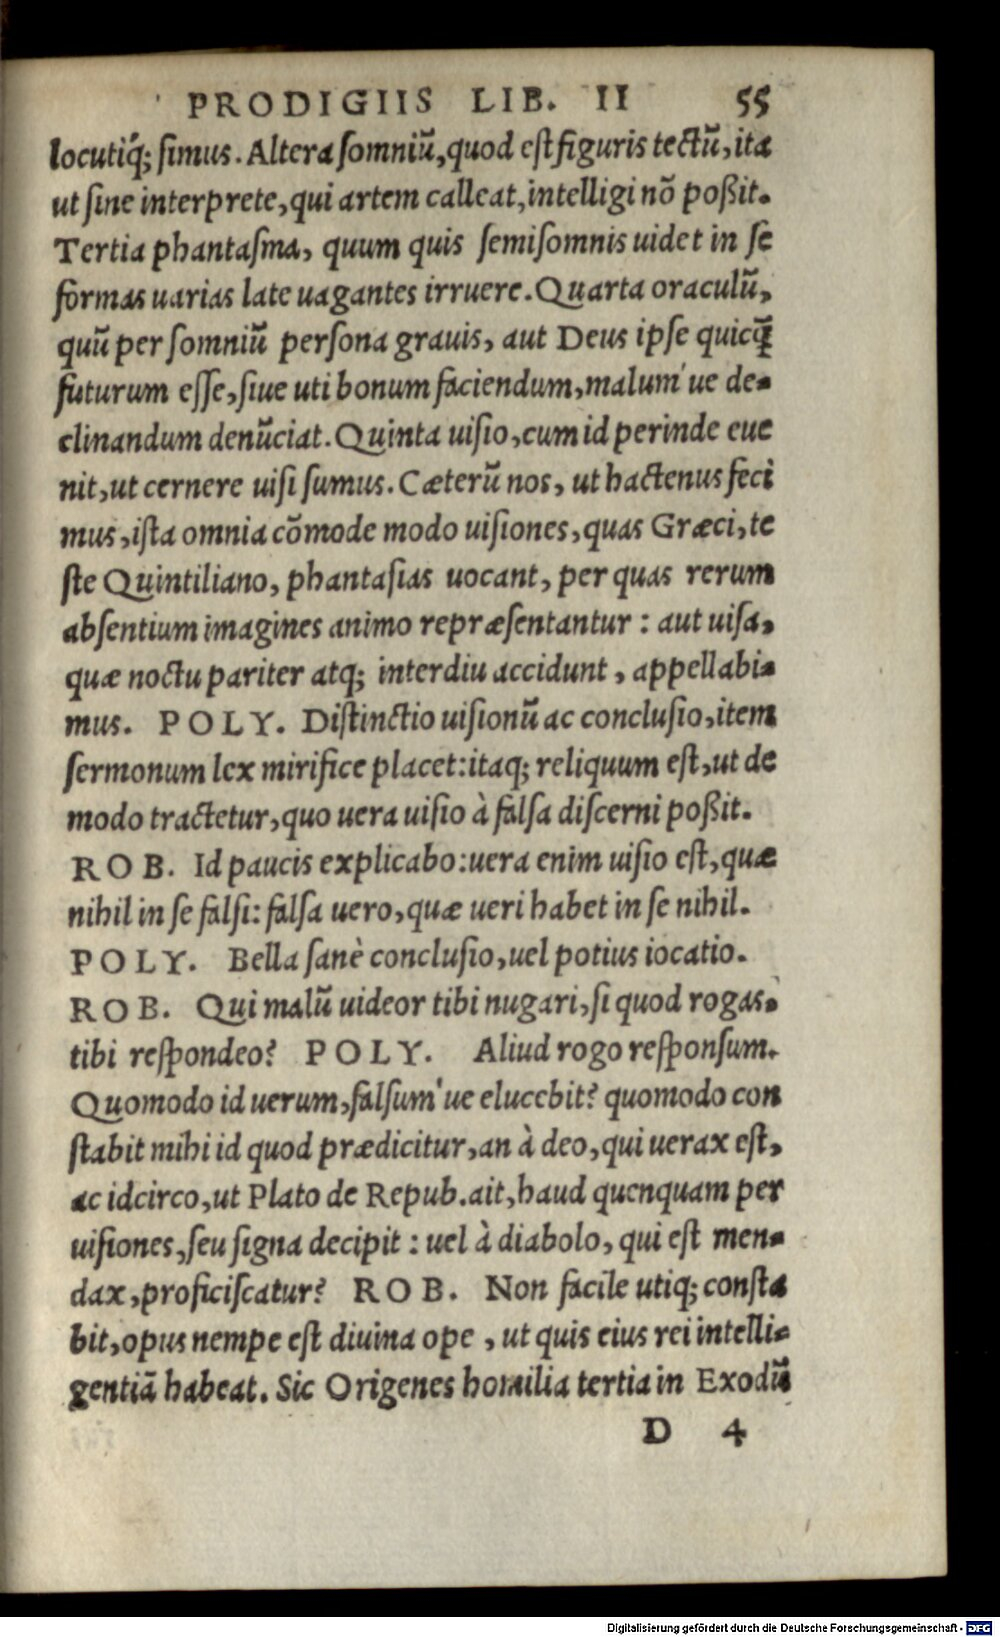 PRODIGIIS LIB. II 55
locutiq́; ſimus. Altera ſomniũ, quod eſt figuris tectũ, ita
ut ſine interprete, qui artem calleat, intelligi nõ poßit.
Tertia phantaſma, quum quis ſemiſomnis uidet in ſe
formas uarias late uagantes irruere. Quarta oraculũ,
quũ per ſomniũ perſona grauis, aut Deus ipſe quicq̃
futurum eſſe, ſiue uti bonum faciendum, malum'ue de-
clinandum denũciat. Quinta uiſio, cum id perinde eue
nit, ut cernere uiſi ſumus. Cæterũ nos, ut hactenus feci
mus, iſta omnia cõmode modo uiſiones, quas Græci, te
ſte Quintiliano, phantaſias uocant, per quas rerum
abſentium imagines animo repræſentantur : aut uiſa,
quæ noctu pariter atq; interdiu accidunt, appellabi-
mus. POLY. Diſtinctio uiſionũ ac concluſio, item
ſermonum lex mirifice placet: itaq; reliquum eſt, ut de
modo tractetur, quo uera uiſio à falſa diſcerni poßit.
ROB. Id paucis explicabo: uera enim uiſio eſt, quæ
nihil in ſe falſi: falſa uero, quæ ueri habet in ſe nihil.
POLY. Bella ſanè concluſio, uel potius iocatio.
ROB. Qui malũ uideor tibi nugari, ſi quod rogas,
tibi reſpondeo? POLY. Aliud rogo reſponſum.
Quomodo id uerum, falſum'ue elucebit? quomodo con
ſtabit mihi id quod prædicitur, an à deo, qui uerax eſt,
ac idcirco, ut Plato de Repub. ait, haud quenquam per
uiſiones, ſeu ſigna decipit : uel à diabolo, qui eſt men-
dax, proficiſcatur? ROB. Non facile utiq; conſta
bit, opus nempe eſt diuina ope, ut quis eius rei intelli-
gentiã habeat. Sic Origenes homilia tertia in Exodũ
D 4
Digitalisierung gefördert durch die Deutsche Forschungsgemeinschaft - DFG